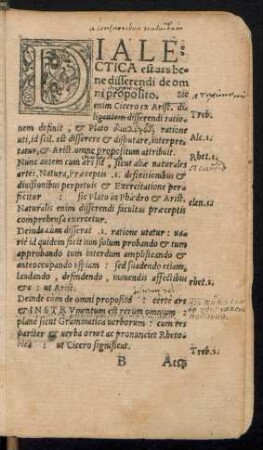 DIALE-
CTICA est ars be
ne disserendi de om
ni proposito. Sic
enim Cicero ex Arist. di
ligentem disserendi ratio-
nem definit, & Plato
uti, id scil. est disserere & disputare, interpre-
tatur, & Arist. omne propositum attribuit.
Nunc autem cum ars sit, sicut aliæ naturales
artes, Natura, Præceptis .i. definitionibus &
diuisionibus perpetuis & Exercitatione per-
ficitur : sic Plato in Phædro & Arist.
Naturalis enim disserendi facultas præceptis
comprehensa exercetur.
Deinde cum disserat .i. ratione utatur : ua-
rié id quidem facit non solum probando & tum
approbando tum interdum amplificando &
anteoccupando uspiam : sed suadendo etiam,
laudando, defendendo, mouendis affectibus
& c : ut Arist.
Deinde cum de omni proposito : certe ars
& INSTRVmentum est rerum omnium :
plane sicut Grammatica uerborum : cum res
pariter & uerba ornet ac pronunciet Rheto-
rica : ut Cicero significat.
B
Treb.
Alc.1.
Rhet.1.
elen.12
rhet.1.
Treb.1.